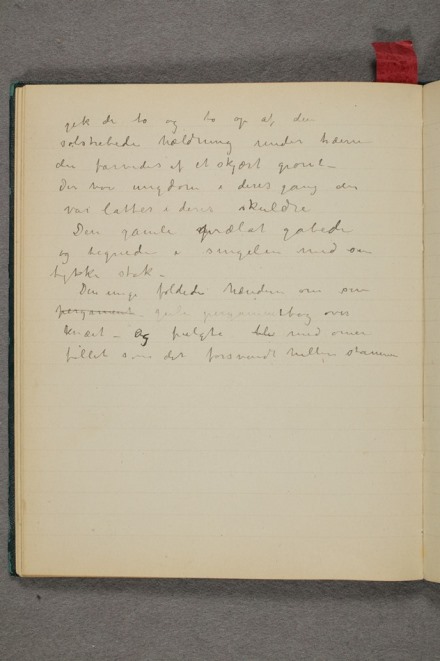 gik de to og to op af den
solstribede hældning under træerne
der farvedes af et skjært grønt –
Der var ungdom i deres gang der
var latter i deres skuldre
Den gamle prælat gabede
og tegnede i singelen med sin
tykke stok –
Den unge foldede hænderne om sin
pergament gule pergamentbog over
knæet – og fulgte med
fillet som det forsvandt mellem stammer